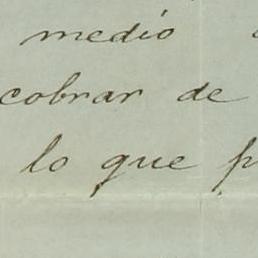 medio
cobrar de
lo que p